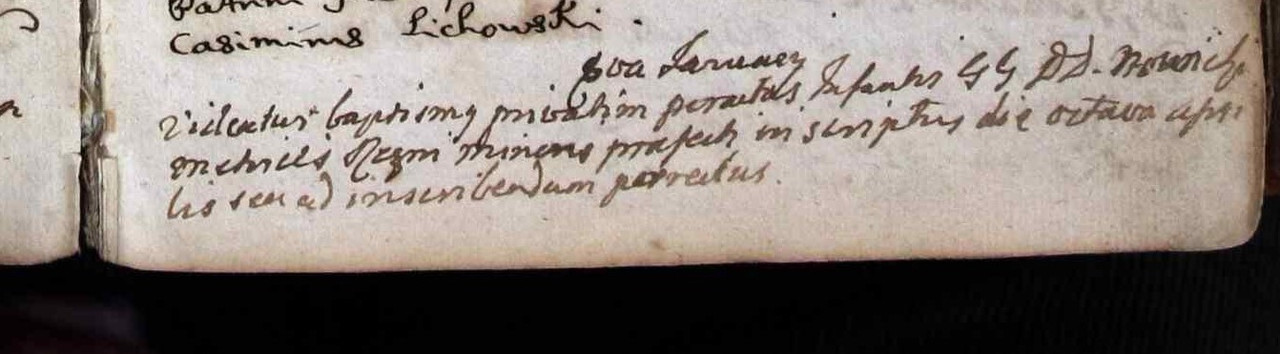 Casimirus Lichowski.
8va January
Videatur baptismus privatim peractus Infantis GG DD. Nowicki
metricis Regni minoris præfecti in scriptus die octava apri
lis seu ad inscribendum porrectus.